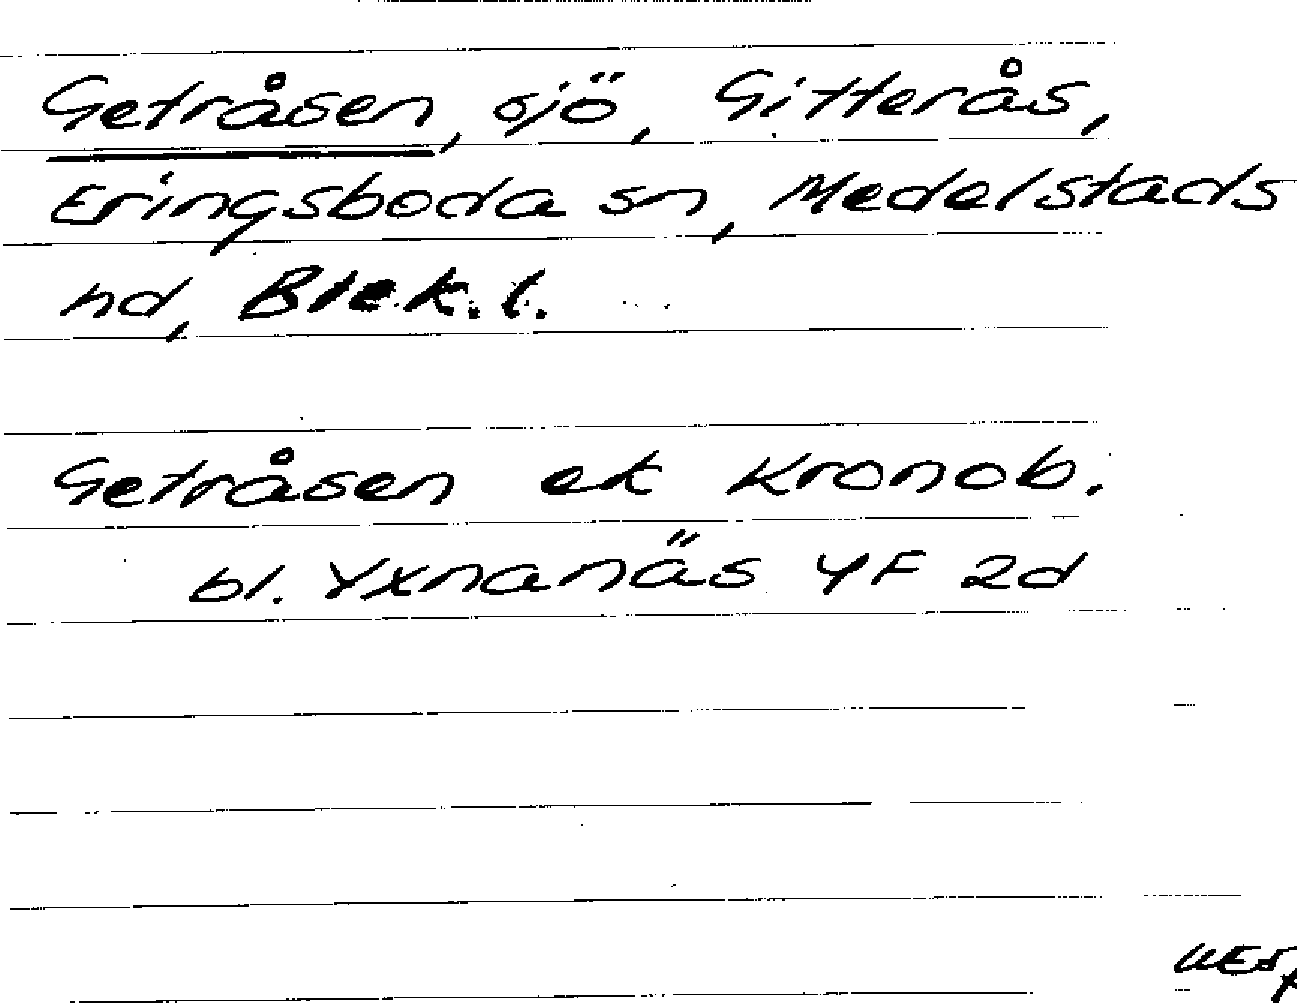 Getråsen, sjö, Gitterås,
Eringsboda sn, Medelstads
hd, Blek. l.
Getråsen ek Kronob.
bl. Yxnanäs YF 2d